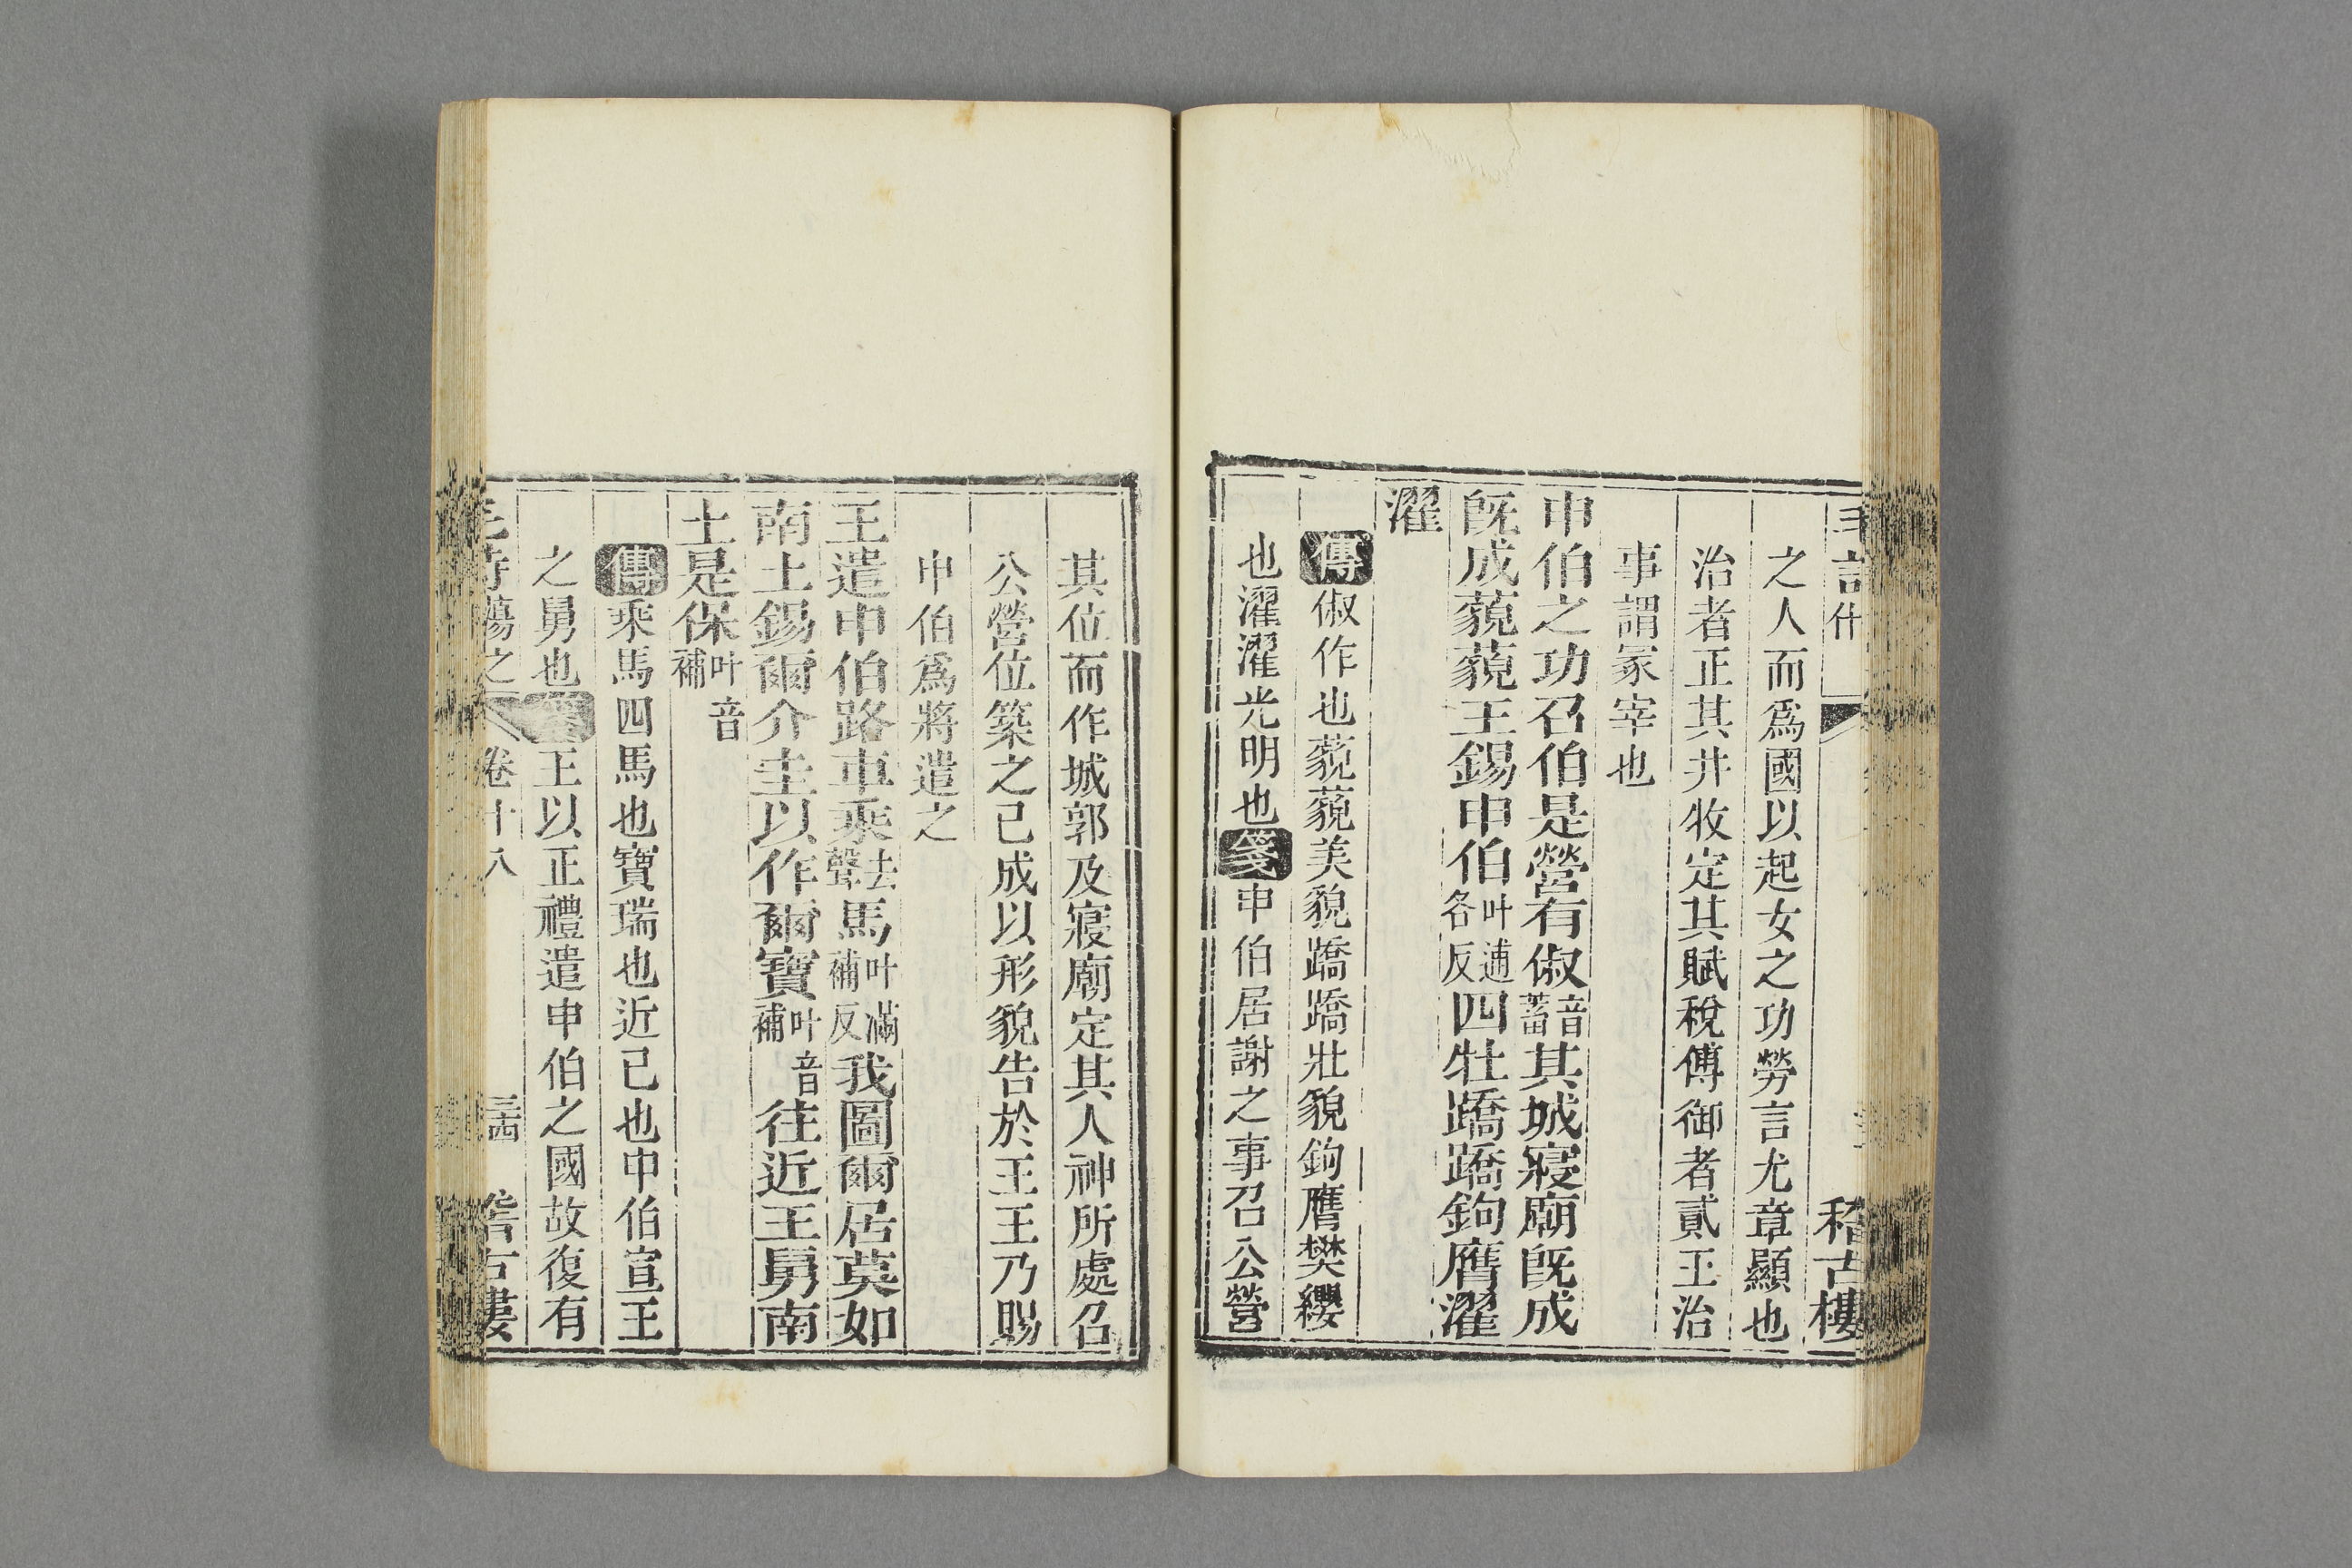 之人而爲國以起女之功勞言尤章顯也
治者正其井牧定其賦稅傅御者貳王治
事謂冢宰也
申伯之功召伯是營有俶音蓄其城寢廟既成
既成藐藐王錫申伯叶逋各反四牡蹻蹻鉤膺濯
濯
傳俶作也藐藐美貌蹻蹻壯貌鉤膺樊纓
也濯濯光明也箋申伯居謝之事召公營
稽古樓
其位而作城郭及寢廟定其人神所處召
公營位築之已成以形貌告於王王乃賜
申伯爲將遣之
王遣申伯路車乘去聲馬叶滿補反我圖爾居莫如
南土錫爾介圭以作爾寶叶音補往近王舅南
土是保叶音補
傳乘馬四馬也寶瑞也近己也申伯宣王
之舅也箋王以正禮遣申伯之國故復有
毛詩蕩之 卷十八 三四 稽古樓